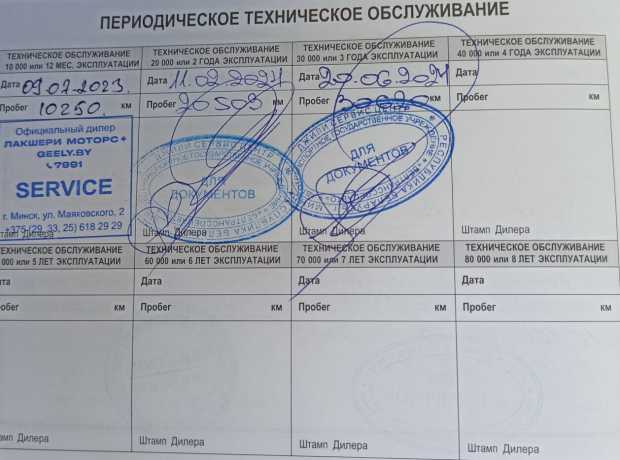 ПЕРИОДИЧЕСКОЕ ТЕХНИЧЕСКОЕ ОБСЛУЖИВАНИЕ
ТЕХНИЧЕСКОЕ ОБСЛУЖИВАНИЕ
10 000 или 12 МЕС. ЭКСПЛУАТАЦИИ
Дата 09.07.2023.
Пробег 10250. км
Официальный дилер
ЛАКШЕРИ МОТОРС
GEELY.BY
7991
SERVICE
г. Минск, ул. Маяковского, 2
+375 (29, 33, 25) 618 29 29
Штамп Дилера
ТЕХНИЧЕСКОЕ ОБСЛУЖИВАНИЕ
20 000 или 2 ГОДА ЭКСПЛУАТАЦИИ
Дата 11.02.2024
Пробег 20503 км
ДЖИЛИ СЕРВИС ЦЕНТР
ДЛЯ
ДОКУМЕНТОВ
Штамп Дилера
ТЕХНИЧЕСКОЕ ОБСЛУЖИВАНИЕ
30 000 или 3 ГОДА ЭКСПЛУАТАЦИИ
Дата
Пробег км
ДЖИЛИ СЕРВИС ЦЕНТР
РЕСПУБЛИКА БЕЛАРУСЬ
ДЛЯ
ДОКУМЕНТОВ
Штамп Дилера
ТЕХНИЧЕСКОЕ ОБСЛУЖИВАНИЕ
40 000 или 4 ГОДА ЭКСПЛУАТАЦИИ
Дата
Пробег км
Штамп Дилера
ТЕХНИЧЕСКОЕ ОБСЛУЖИВАНИЕ
000 или 5 ЛЕТ ЭКСПЛУАТАЦИИ
та
обег км
амп Дилера
ТЕХНИЧЕСКОЕ ОБСЛУЖИВАНИЕ
60 000 или 6 ЛЕТ ЭКСПЛУАТАЦИИ
Дата
Пробег км
Штамп Дилера
ТЕХНИЧЕСКОЕ ОБСЛУЖИВАНИЕ
70 000 или 7 ЛЕТ ЭКСПЛУАТАЦИИ
Дата
Пробег км
Штамп Дилера
ТЕХНИЧЕСКОЕ ОБСЛУЖИВАНИЕ
80 000 или 8 ЛЕТ ЭКСПЛУАТАЦИИ
Дата
Пробег км
Штамп Дилера